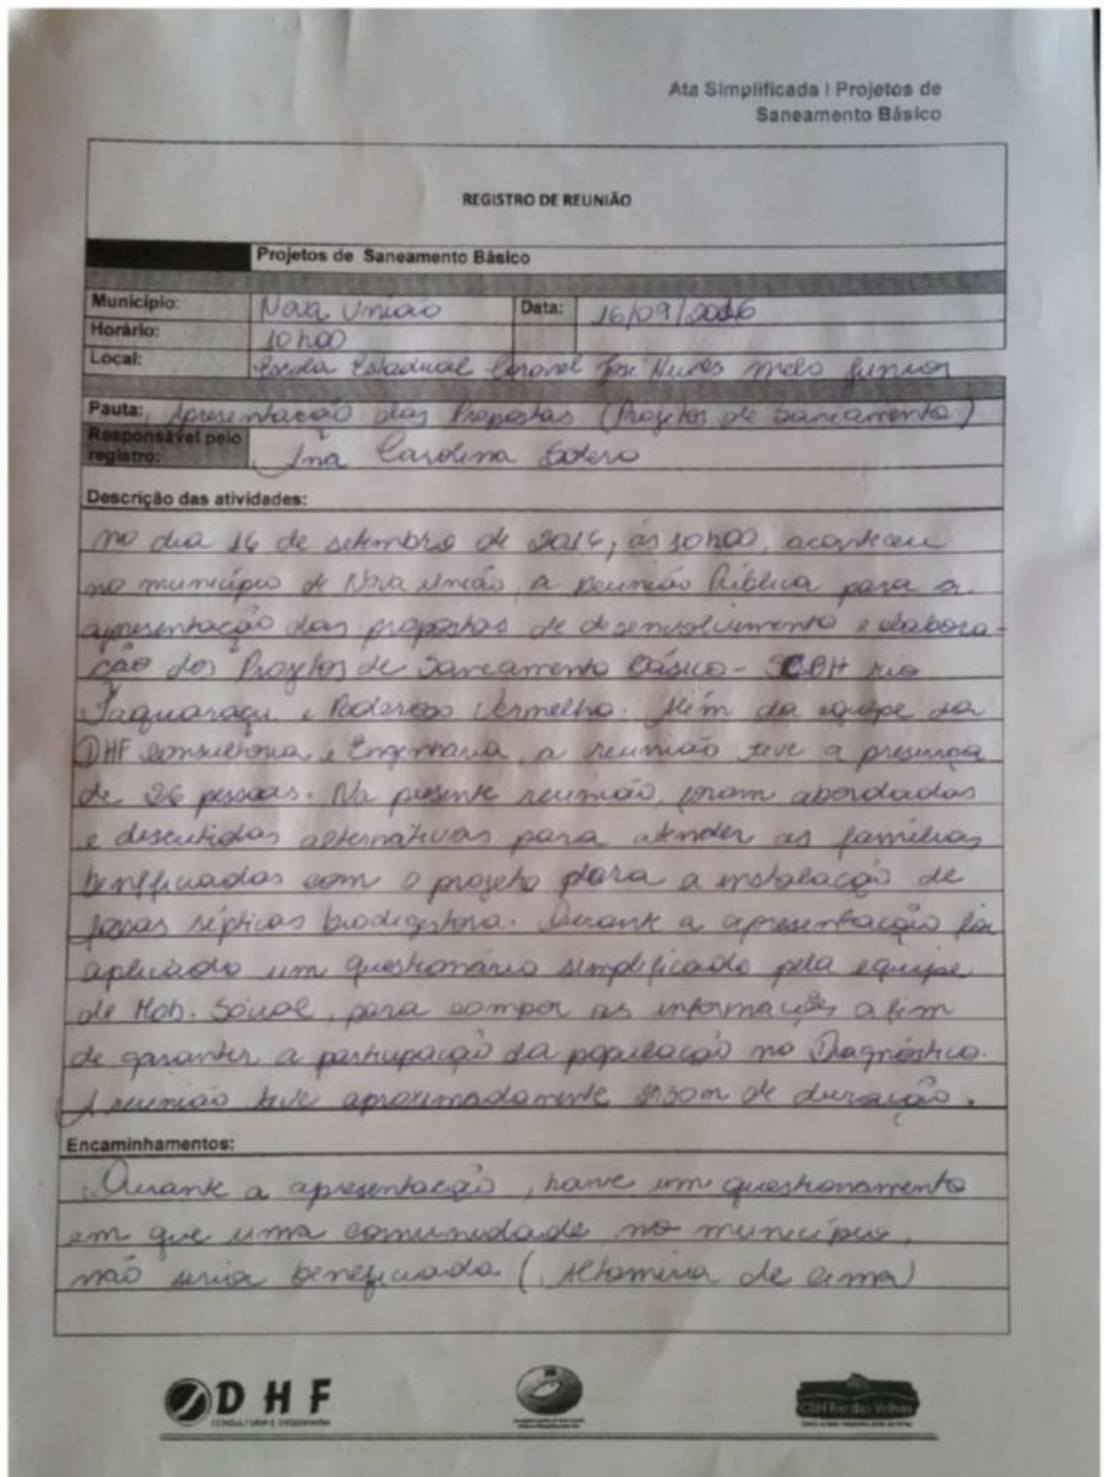 Ata Simplificada I Projetos de
Saneamento Básico
REGISTRO DE REUNIÃO
Projetos de Saneamento Básico
Município: Nova União Data: 16/09/2016
Horário: 10h00
Local: Escola Estadual Coronel José Nunes Melo Junior
Pauta: Apresentação das Propostas (Projetos de Saneamento)
Responsável pelo
registro: Ana Carolina Sotero
Descrição das atividades:
no dia 16 de setembro de 2016, às 10h00, aconteceu
no município de Nova União, a Reunião Pública para a
apresentação das propostas de desenvolvimento e elabora-
ção dos Projetos de Saneamento Básico - SCBH rio
Taquaraçu e Poderoso Vermelho. Além da equipe da
DHF Consultoria e Engenharia, a reunião teve a presença
de 26 pessoas. Na presente reunião, foram abordadas
e discutidas alternativas para atender as famílias
beneficiadas com o projeto para a instalação de
fossas sépticas biodigestora. Durante a apresentação foi
aplicado um questionário simplificado pela equipe
de Mob. Social, para compor as informações a fim
de garantir a participação da população no Diagnóstico.
A reunião teve aproximadamente de duração.
Encaminhamentos:
Durante a apresentação, houve um questionamento
em que uma comunidade no município,
não seria beneficiada (Altamira de cima)
DHF
CONSULTORIA E ENGENHARIA
CBH Rio das Velhas